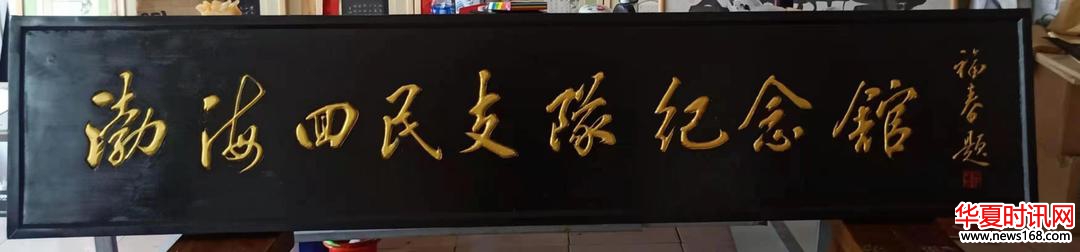 渤海四民支隊纪念館
福春题
华夏时讯网
www.news168.com